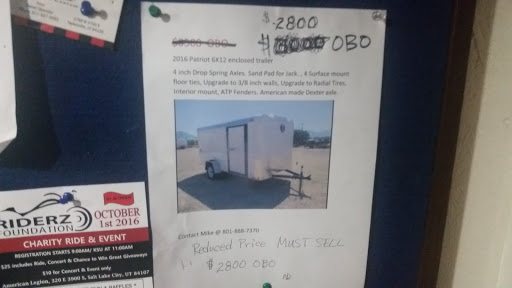 $ 2800
OBO
2016 Patriot 6X12 enclosed trailer
4 inch Drop Spring Axles, Sand Pad for Jack , 4 Surface mount
floor ties, Upgrade to 3/8 inch walls, Upgrade to Radial Tires,
Interior mount, ATP Fenders. American made Dexter axle.
Contact Mike @ 801-888-7370
Reduced Price MUST SELL
$2800 OBO
RIDERZ
FOUNDATION
OCTOBER
1st 2016
CHARITY RIDE & EVENT
REGISTRATION STARTS 9:00AM/ KSU AT 11:00AM
$25 includes Ride, Concert & Chance to Win Great Giveaways
$10 for Concert & Event only
American Legion, 320 E 3900 S, Salt Lake City, UT 84107